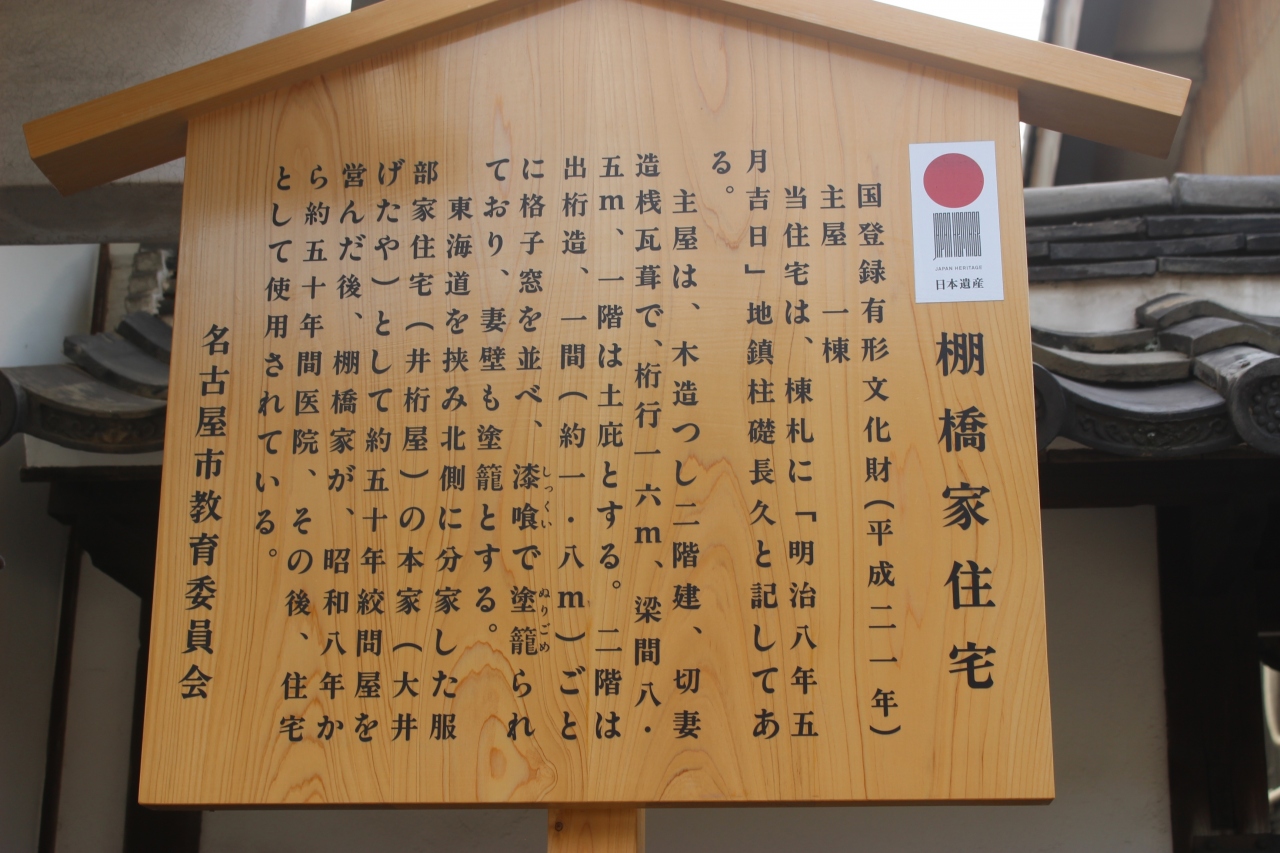 JAPAN HERITAGE
日本遺産
棚橋家住宅
国登録有形文化財(平成二一年)
主屋 一棟
当住宅は、棟札に「明治八年五
月吉日」地鎮柱礎長久と記してあ
る。
主屋は、木造つし二階建、切妻
造桟瓦葺で、桁行一六m、梁間八・
五m、一階は土庇とする。二階は
出桁造、一間(約一・八m)ごと
に格子窓を並べ、漆喰で塗籠られ
しっくい
ぬりごめ
ており、妻壁も塗籠とする。
東海道を挟み北側に分家した服
部家住宅(井桁屋)の本家(大井
げたや)として約五十年絞問屋を
営んだ後、棚橋家が、昭和八年か
ら約五十年間医院、その後、住宅
として使用されている。
名古屋市教育委員会